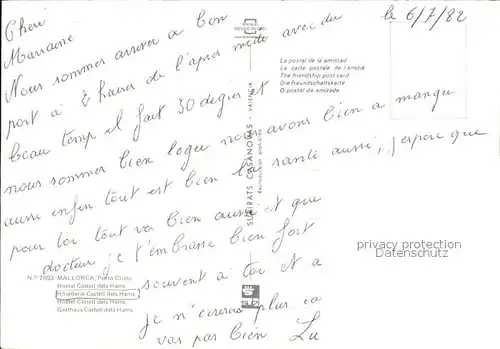 le 6/7/82
Cheri
Marraine
Nous sommer arriver a bon
port a 2 heure de l'apres midi avec du
beau temp il fait 30 degres et
nous sommer bien loger nous avons bien a manger
aussi enfin tout est bien la santé aussi, j'espere que
pour toi tout va bien aussi et que
docteur je t'embrasse bien fort
souvent a toi et a
je n'ecrirai plus ca
vas pas bien Lu
La postal de la amistad
La carte postale de l'amitié
The friendship post card
Die Freundschaftskarte
O postal da amizade
SUBIRATS CASANOVAS - VALENCIA
Reproducción prohibida
N.º 2893 MALLORCA, Porto Cristo
Hostal Castell dels Hams
Hôtellerie Castell dels Hams
Hostel Castell dels Hams
Gasthaus Castell dels Hams
privacy protection
Datenschutz